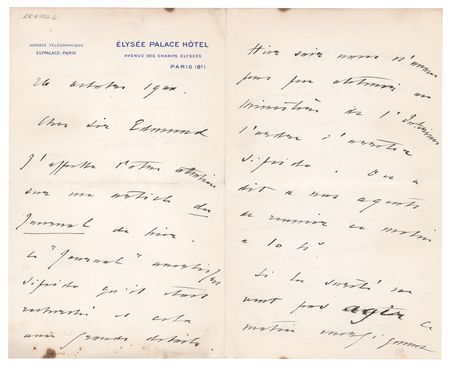 LEOPOLD
ADRESSE TÉLÉGRAPHIQUE
ELYPALACE-PARIS
ÉLYSÉE PALACE HÔTEL
AVENUE DES CHAMPS ELYSÉES
PARIS (8e)
26 octobre
Cher Sir Edmund
J'appelle votre attention
sur un article du
Journal de hier.
Le "Journal" avertissait
Sipido qu'il était
recherché et cela
avec grands détails.
Hier soir nous n'avons
pas pu obtenir au
Ministère de l'Intérieur
l'ordre d'arrêter
Sipido. On a
dit à nos agents
de revenir ce matin
à 10 h
Si la sureté ne
veut pas agir ce
matin